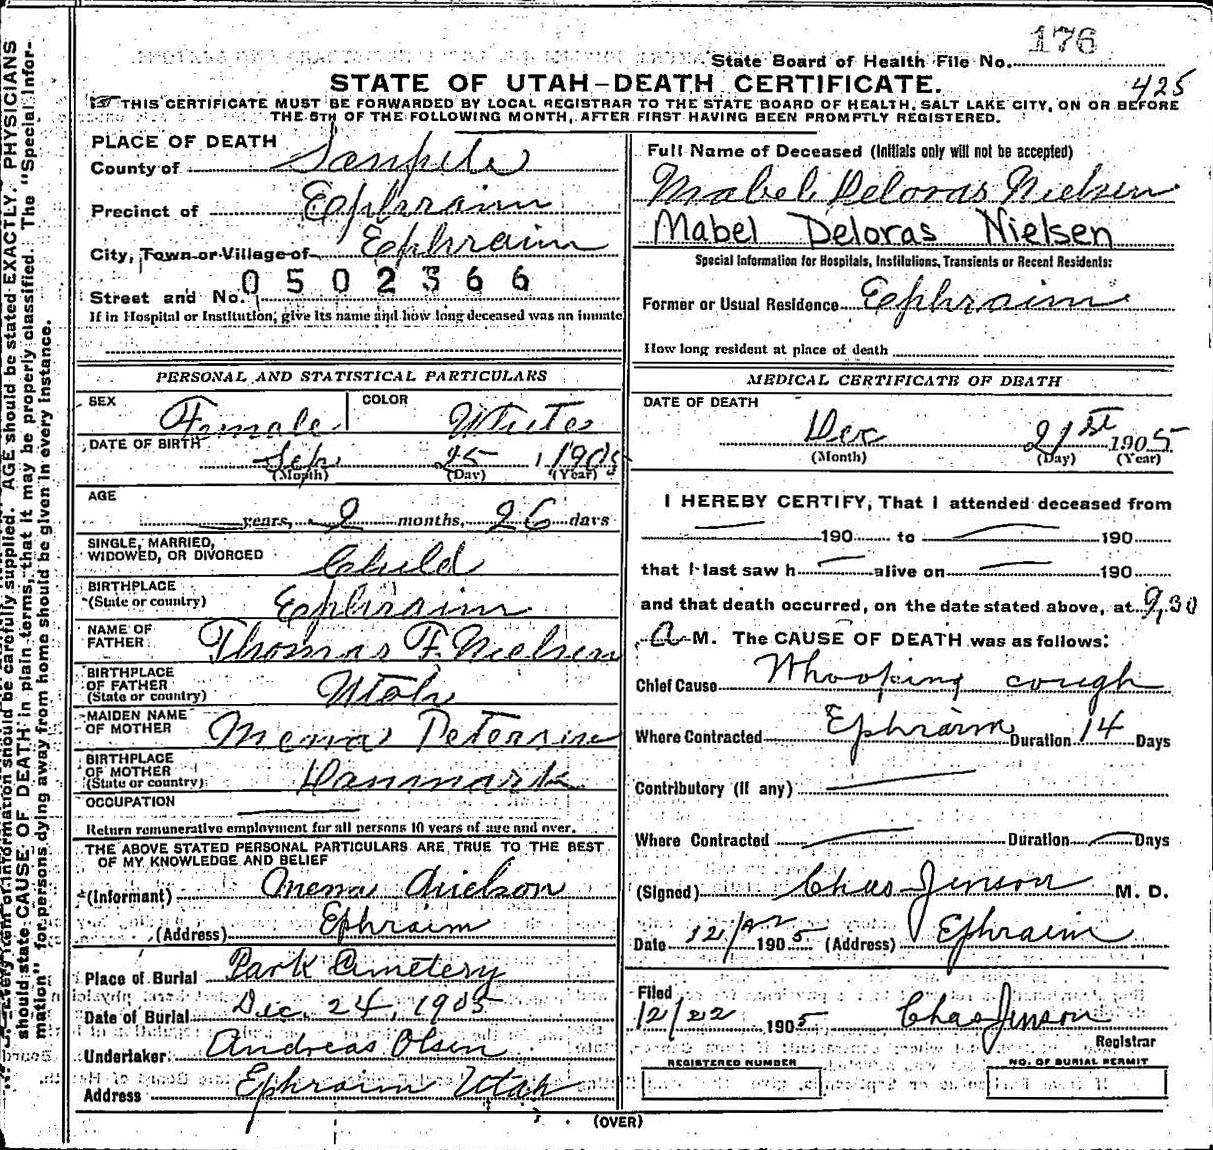 176
State Board of Health File No.
425
STATE OF UTAH-DEATH CERTIFICATE.
THIS CERTIFICATE MUST BE FORWARDED BY LOCAL REGISTRAR TO THE STATE BOARD OF HEALTH, SALT LAKE CITY, ON OR BEFORE
THE 5TH OF THE FOLLOWING MONTH, AFTER FIRST HAVING BEEN PROMPTLY REGISTERED.
PLACE OF DEATH
County of Sanpete
Precinct of Ephraim
City, Town or Village of Ephraim
0502366
Street and No.
If in Hospital or Institution, give its name and how long deceased was an inmate
PERSONAL AND STATISTICAL PARTICULARS
SEX Female COLOR White
DATE OF BIRTH Sep 25 1905
(Month) (Day) (Year)
AGE
years, 2 months, 26 days
SINGLE, MARRIED,
WIDOWED, OR DIVORCED Child
BIRTHPLACE
(State or country) Ephraim
NAME OF
FATHER Thomas F. Nielsen
BIRTHPLACE
OF FATHER
(State or country) Utah
MAIDEN NAME
OF MOTHER Mena Petersen
BIRTHPLACE
OF MOTHER
(State or country) Danmark
OCCUPATION
Return remunerative employment for all persons 10 years of age and over.
THE ABOVE STATED PERSONAL PARTICULARS ARE TRUE TO THE BEST
OF MY KNOWLEDGE AND BELIEF
(Informant) Mena
(Address) Ephraim
Place of Burial Park Cemetery
Date of Burial Dec. 24, 1905
Undertaker Andreas Olsen
Address Ephraim Utah
Full Name of Deceased (Initials only will not be accepted)
Mabel Deloras Nielsen
Mabel Deloras Nielsen
Special Information for Hospitals, Institutions, Transients or Recent Residents:
Former or Usual Residence Ephraim
How long resident at place of death
MEDICAL CERTIFICATE OF DEATH
DATE OF DEATH
Dec 21st 1905
(Month) (Day) (Year)
I HEREBY CERTIFY, That I attended deceased from
190 to 190
that I last saw h alive on 190
and that death occurred, on the date stated above, at 9,30
A M. The CAUSE OF DEATH was as follows:
Chief Cause Whooping cough
Where Contracted Ephraim Duration 14 Days
Contributory (if any)
Where Contracted Duration Days
(Signed) Chas Jenson M. D.
Date 12/22 1905 (Address) Ephraim
Filed
12/22 1905 Chas Jenson
Registrar
REGISTERED NUMBER NO. OF BURIAL PERMIT
(OVER)
Every item of information should be carefully supplied. AGE should be stated EXACTLY. PHYSICIANS
should state CAUSE OF DEATH in plain terms, that it may be properly classified. The "Special Infor-
mation" for persons dying away from home should be given in every instance.